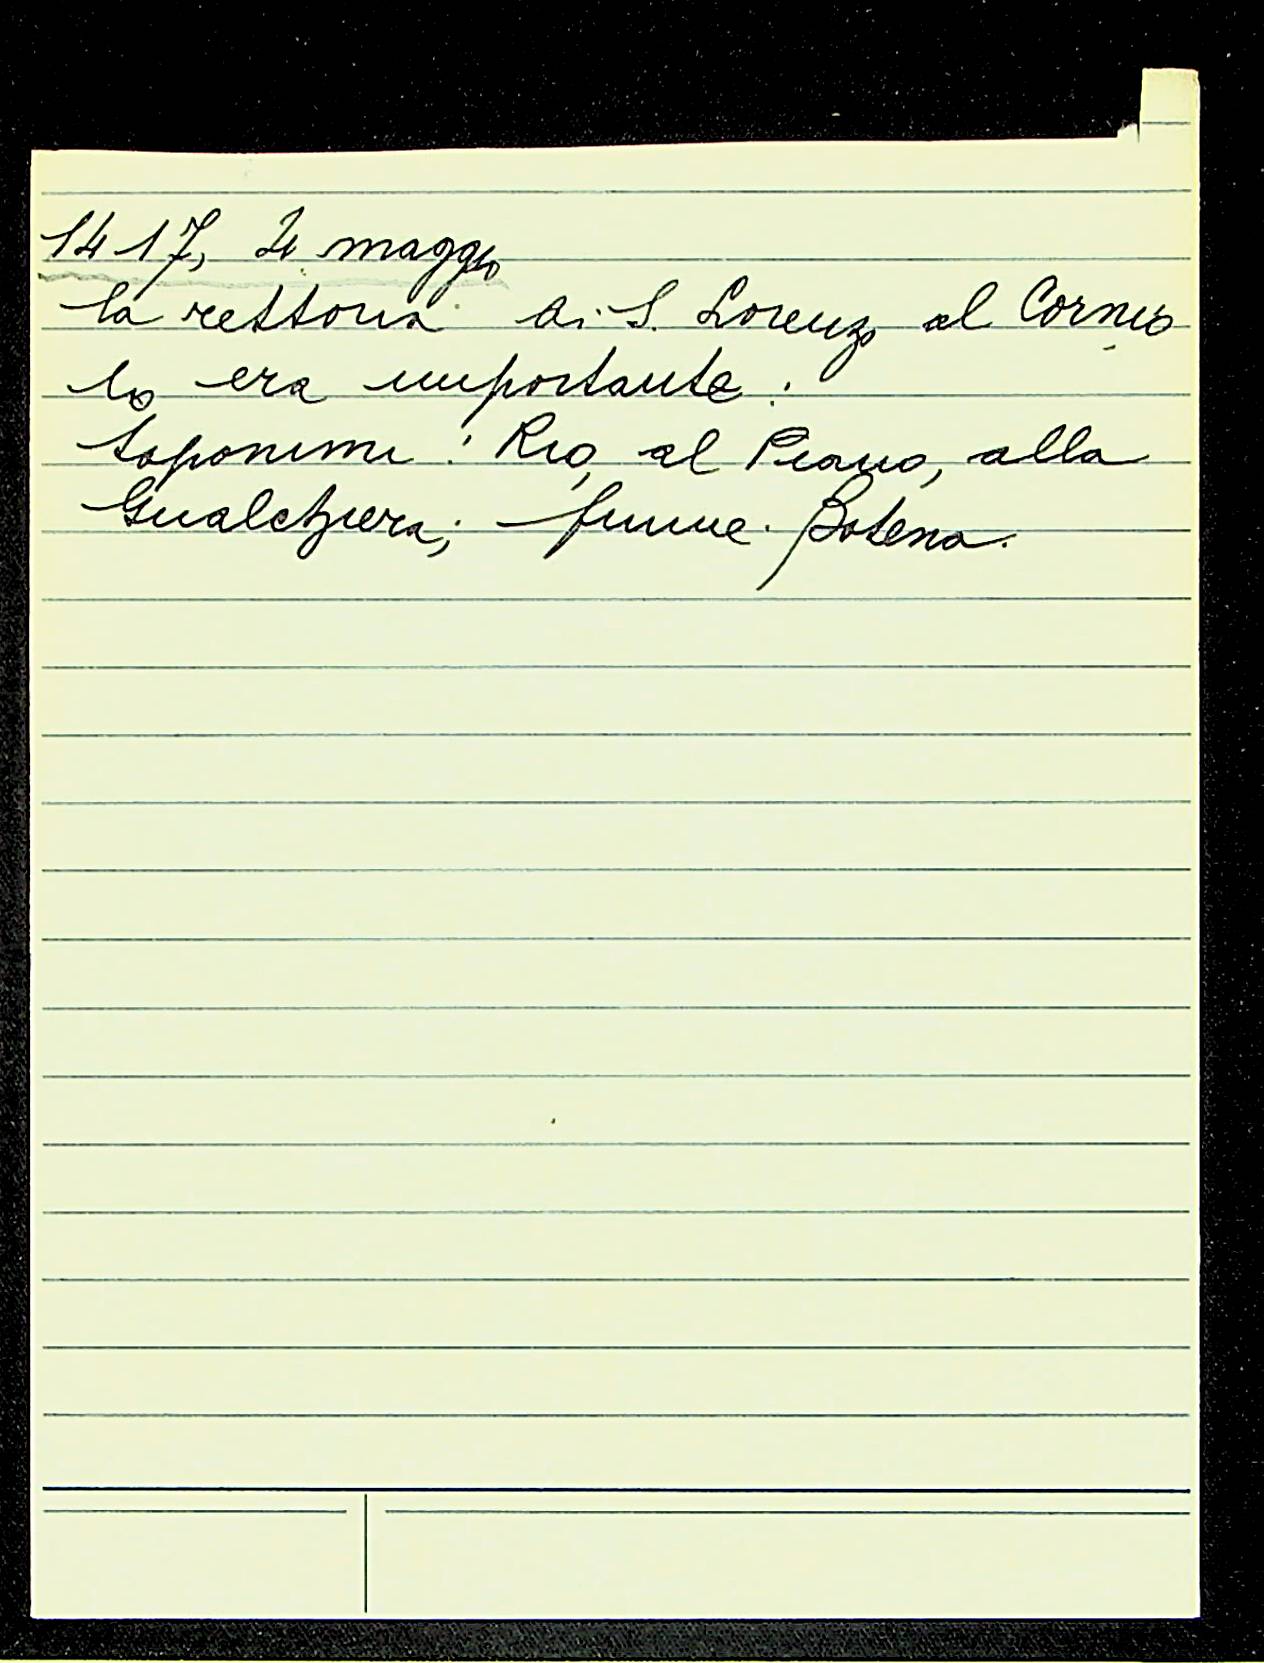 1417, 4 maggio
la rettoria di S. Lorenzo al Cornio
lo era importante.
toponimi: Rio, al Piano, alla
Gualchiera; fiume Botena.